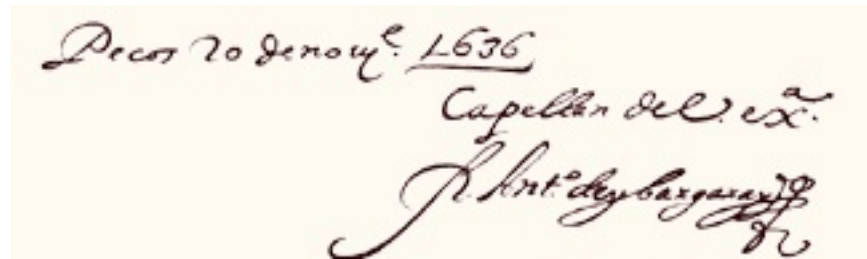 Pecos 20 de nou^e. 1636
Capellan de V. ex^a.
fr. Ant^o. de ybargaray